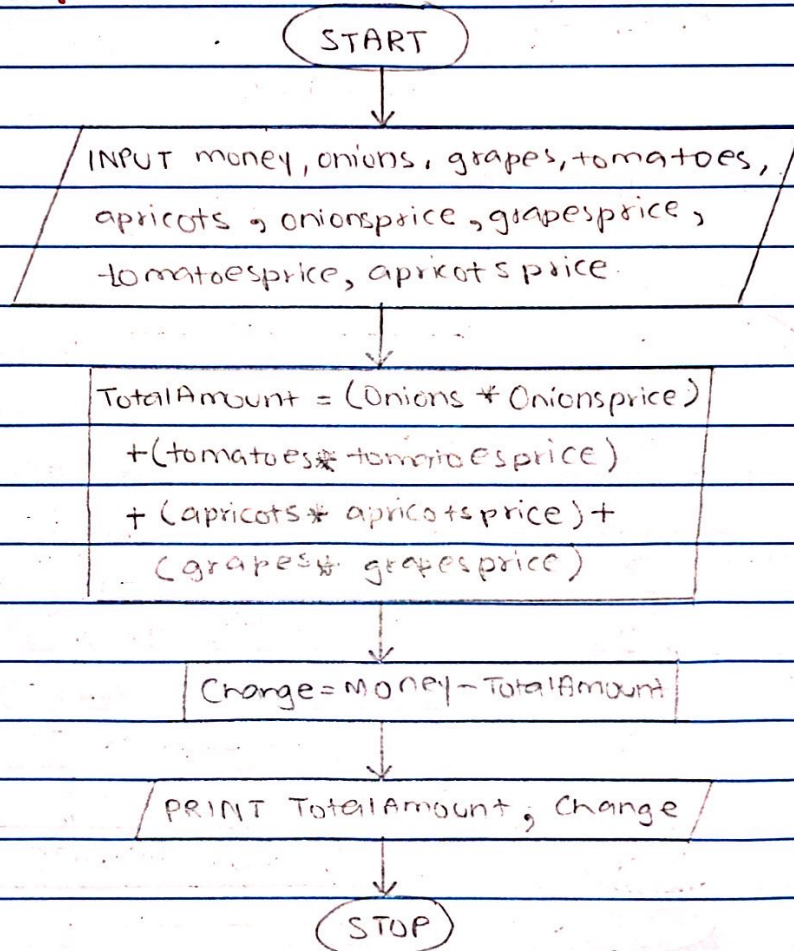 START
INPUT money, onions, grapes, tomatoes,
apricots, onionsprice, grapesprice,
tomatoesprice, apricotsprice.
TotalAmount = (Onions * Onionsprice)
+(tomatoes* tomatoesprice)
+ (apricots* apricotsprice) +
(grapes* grapesprice)
Change = Money - TotalAmount
PRINT TotalAmount, Change
STOP